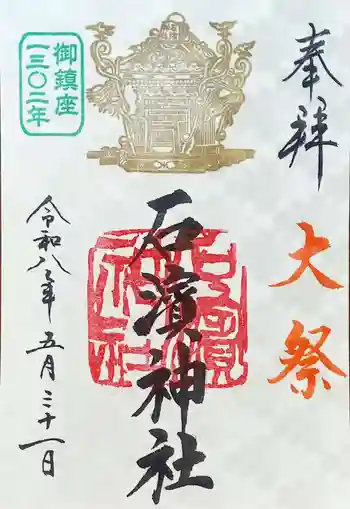 奉拝
大祭
石濱神社
石濱神社
御鎮座
一三〇二年
令和八年五月三十一日